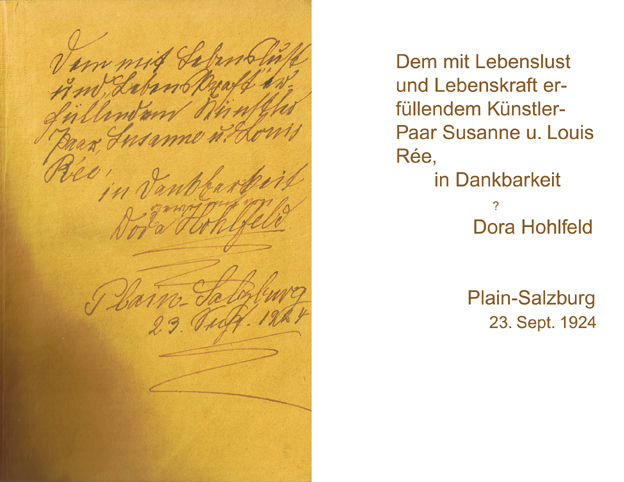 Dem mit Lebenslust
und Lebenskraft er-
füllendem Künstler-
Paar Susanne u. Louis
Rée,
in Dankbarkeit
gewidmet von
Dora Hohlfeld
Plain-Salzburg
23. Sept. 1924
Dem mit Lebenslust
und Lebenskraft er-
füllendem Künstler-
Paar Susanne u. Louis
Rée,
in Dankbarkeit
?
Dora Hohlfeld
Plain-Salzburg
23. Sept. 1924